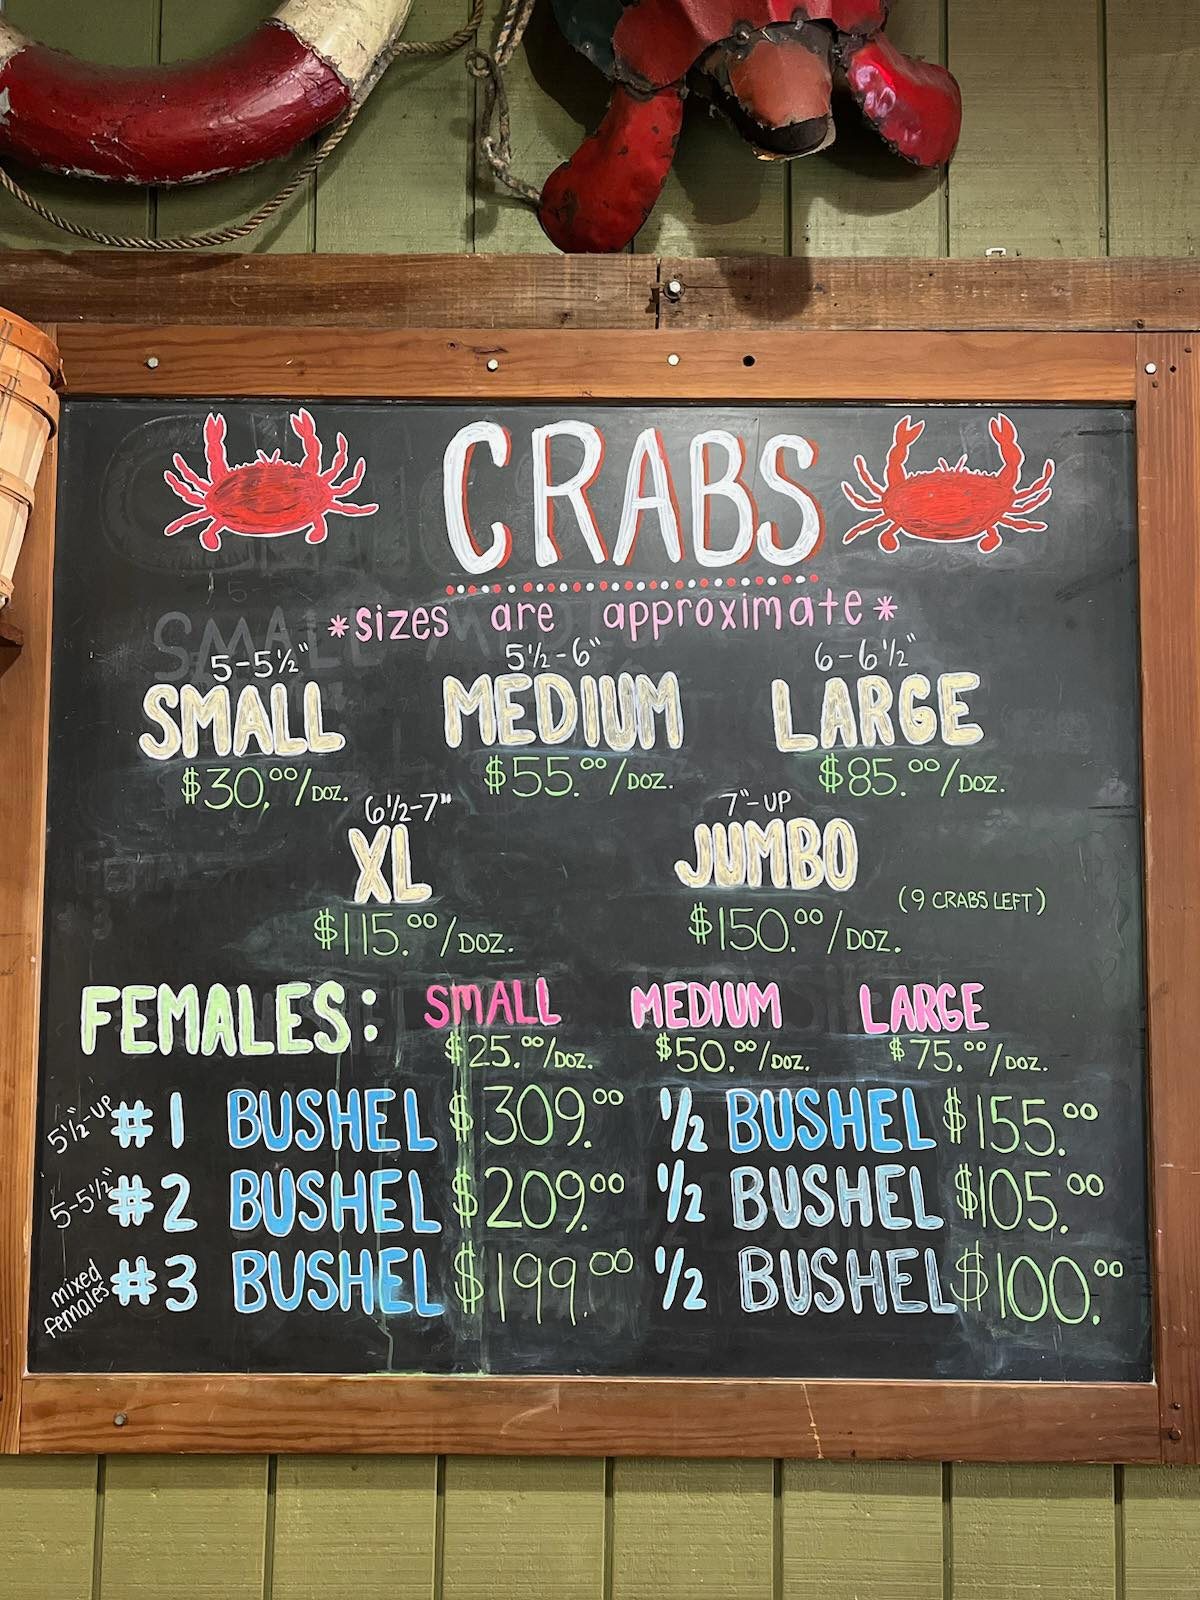 CRABS
*sizes are approximate*
5-5½" 5½-6" 6-6½"
SMALL MEDIUM LARGE
$30.00/DOZ. $55.00/DOZ. $85.00/DOZ.
6½-7" 7"-UP
XL JUMBO
(9 CRABS LEFT)
$115.00/DOZ. $150.00/DOZ.
FEMALES: SMALL MEDIUM LARGE
$25.00/DOZ. $50.00/DOZ. $75.00/DOZ.
5½"-UP #1 BUSHEL $309.00 ½ BUSHEL $155.00
5-5½" #2 BUSHEL $209.00 ½ BUSHEL $105.00
mixed females #3 BUSHEL $199.00 ½ BUSHEL $100.00